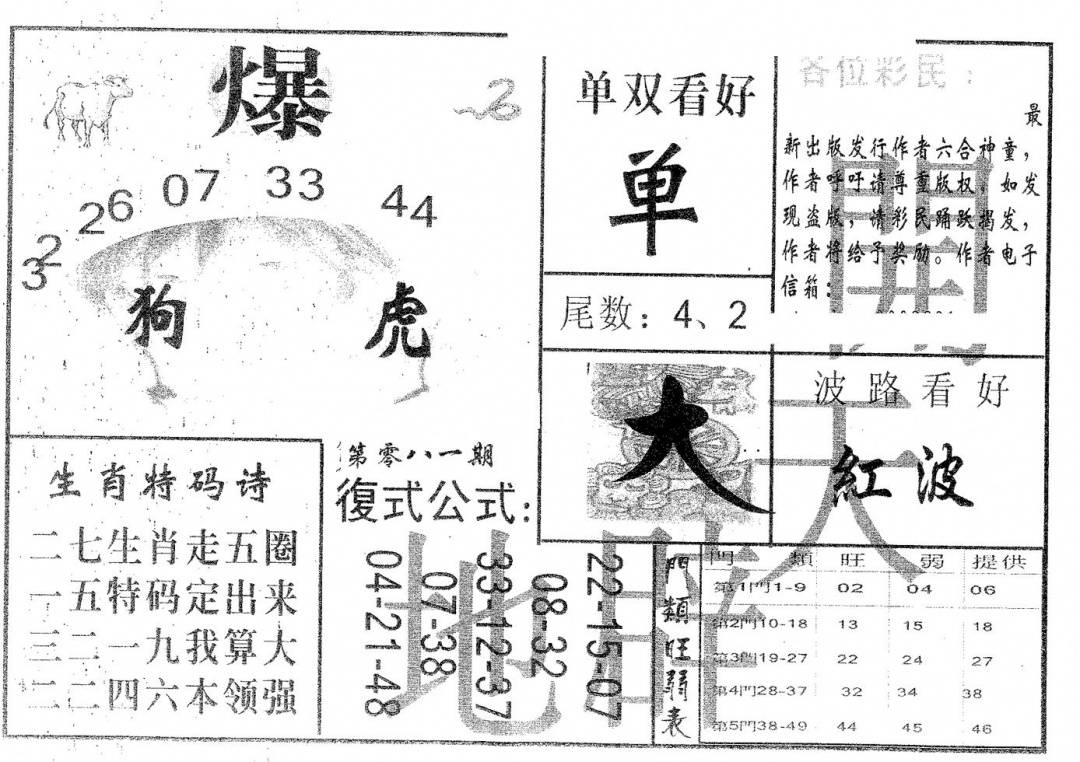 爆
32
26
07
33
44
狗 虎
单双看好
单
尾数：4、2
各位彩民：
最
新出版发行作者六合神童，
作者呼吁请尊重版权，如发
现盗版，请彩民踊跃揭发，
作者将给予奖励。作者电子
信箱：
大
波路看好
紅波
生肖特码诗
二七生肖走五圈
一五特码定出来
三二一九我算大
二二四六本领强
第零八一期
復式公式：
22-15-07
08-32
33-12-37
07-38
04-21-48
門類旺弱表
門類 旺 弱 提供
第1門1-9 02 04 06
第2門10-18 13 15 18
第3門19-27 22 24 27
第4門28-37 32 34 38
第5門38-49 44 45 46